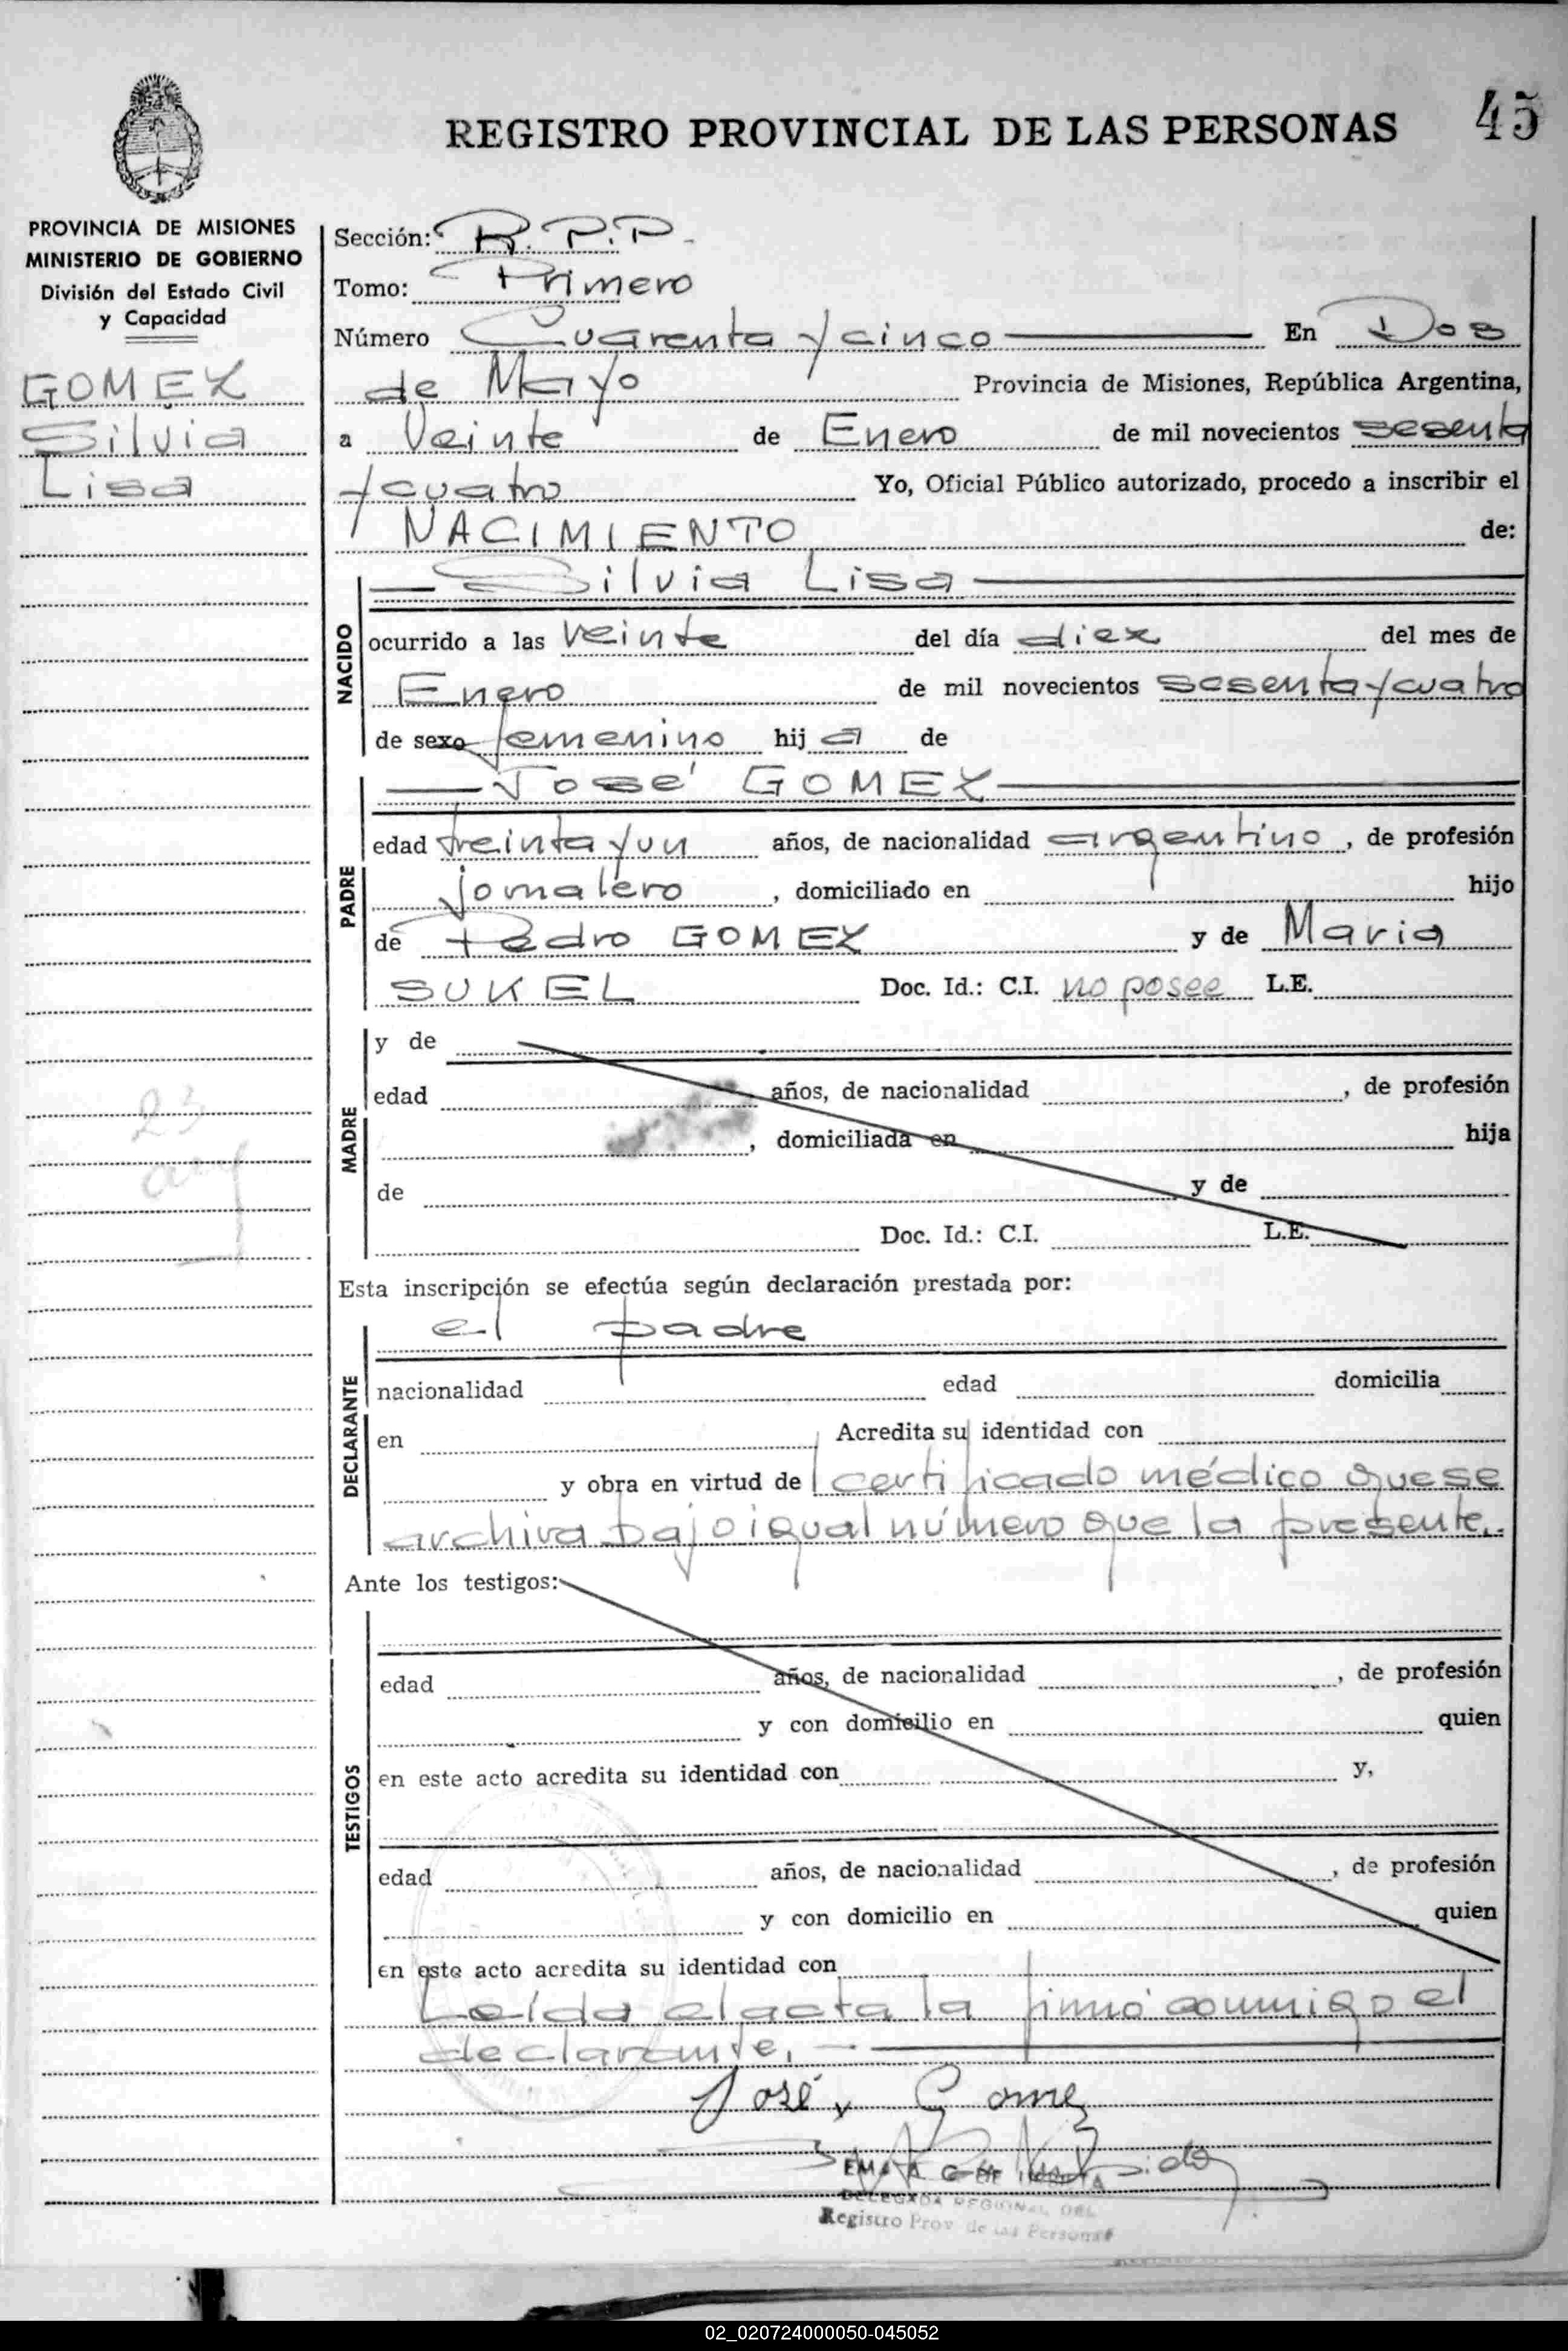 REGISTRO PROVINCIAL DE LAS PERSONAS 45
PROVINCIA DE MISIONES
MINISTERIO DE GOBIERNO
División del Estado Civil
y Capacidad
GOMEZ
Silvia
Lisa
23
Sección: R.P.P.
Tomo: Primero
Número Cuarenta y cinco En Dos
de Mayo Provincia de Misiones, República Argentina,
a Veinte de Enero de mil novecientos sesenta
y cuatro Yo, Oficial Público autorizado, procedo a inscribir el
NACIMIENTO de:
Silvia Lisa
NACIDO
ocurrido a las veinte del día diez del mes de
Enero de mil novecientos sesenta y cuatro
de sexo femenino hij a de
José GOMEZ
PADRE
edad treinta y un años, de nacionalidad argentino, de profesión
jornalero, domiciliado en hijo
de Pedro GOMEZ y de Maria
SUKEL Doc. Id.: C.I. no posee L.E.
MADRE
y de
edad años, de nacionalidad , de profesión
, domiciliada en hija
de y de
Doc. Id.: C.I. L.E.
Esta inscripción se efectúa según declaración prestada por:
el padre
DECLARANTE
nacionalidad edad domicilia
en Acredita su identidad con
y obra en virtud de certificado médico que se
archiva bajo igual número que la presente.
Ante los testigos:
TESTIGOS
edad años, de nacionalidad , de profesión
y con domicilio en quien
en este acto acredita su identidad con y,
edad años, de nacionalidad , de profesión
y con domicilio en quien
en este acto acredita su identidad con
Leída el acta la firmó conmigo el
declarante.
José Gomez
DELEGADA REGIONAL DEL
Registro Prov. de las Personas
02_020724000050-045052